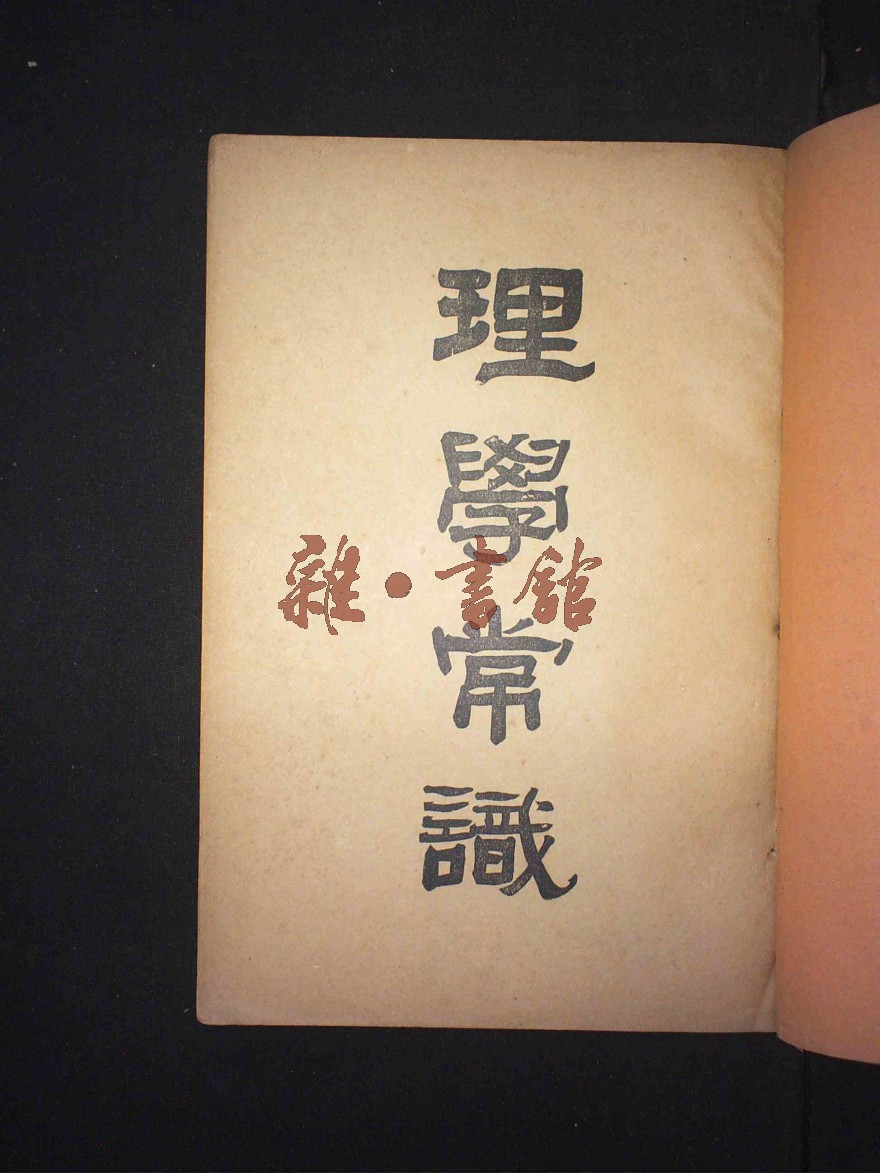 理學常識
雜·書館